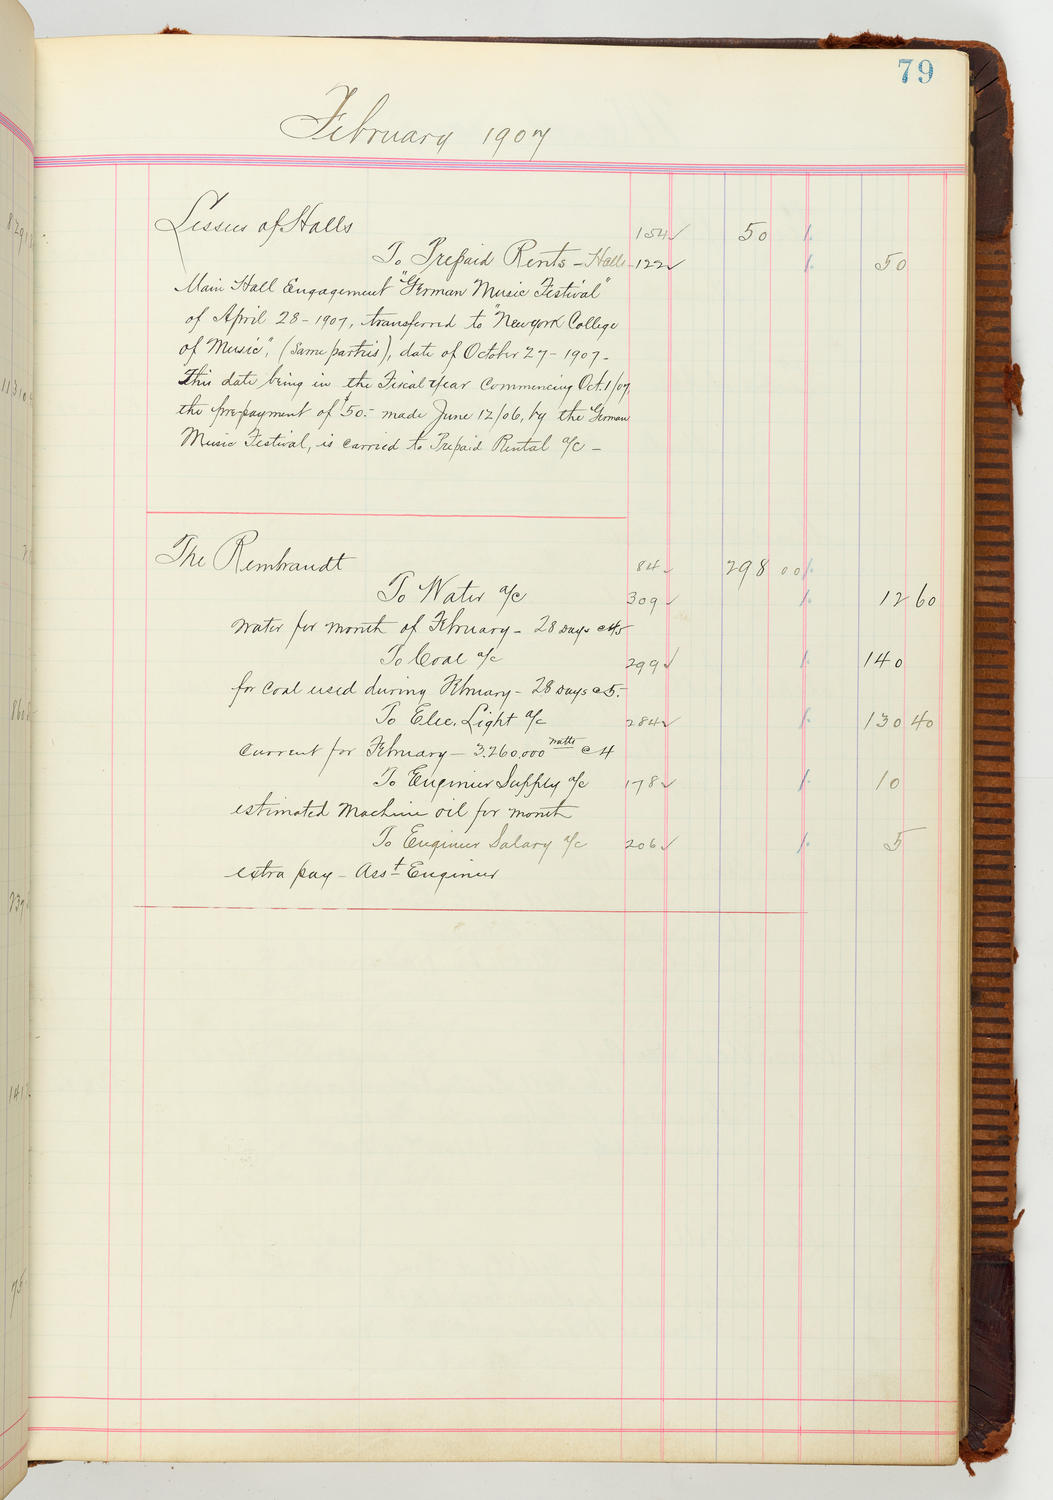 79
February 1907
Lessees of Halls 154 ✓ 50
To Prepaid Rents - Halls - 122 ✓ 50
Main Hall Engagement "German Music Festival"
of April 28 - 1907, transferred to "New york College
of Music", (Same parties), date of October 27 - 1907 -
This date being in the Fiscal Year Commencing Oct. 1/07
the pre-payment of $50.- made June 12/06, by the German
Music Festival, is carried to Prepaid Rental a/c -
The Rembrandt 84 ✓ 298 00
To Water a/c 309 ✓ 12 60
Water for month of February - 28 Days @ 45
To Coal a/c 299 ✓ 140
for coal used during February - 28 Days @ 5.-
To Elec. Light a/c 284 ✓ 130 40
Current for February - 3.260.000 watts @ 4
To Engineer Supply a/c 178 ✓ 10
estimated Machine oil for month
To Engineer Salary a/c 206 ✓ 5
extra pay - Asst Engineer